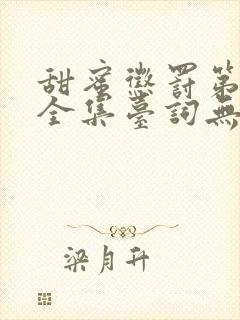 甜蜜懲罰第
全集臺詞無
梁月升